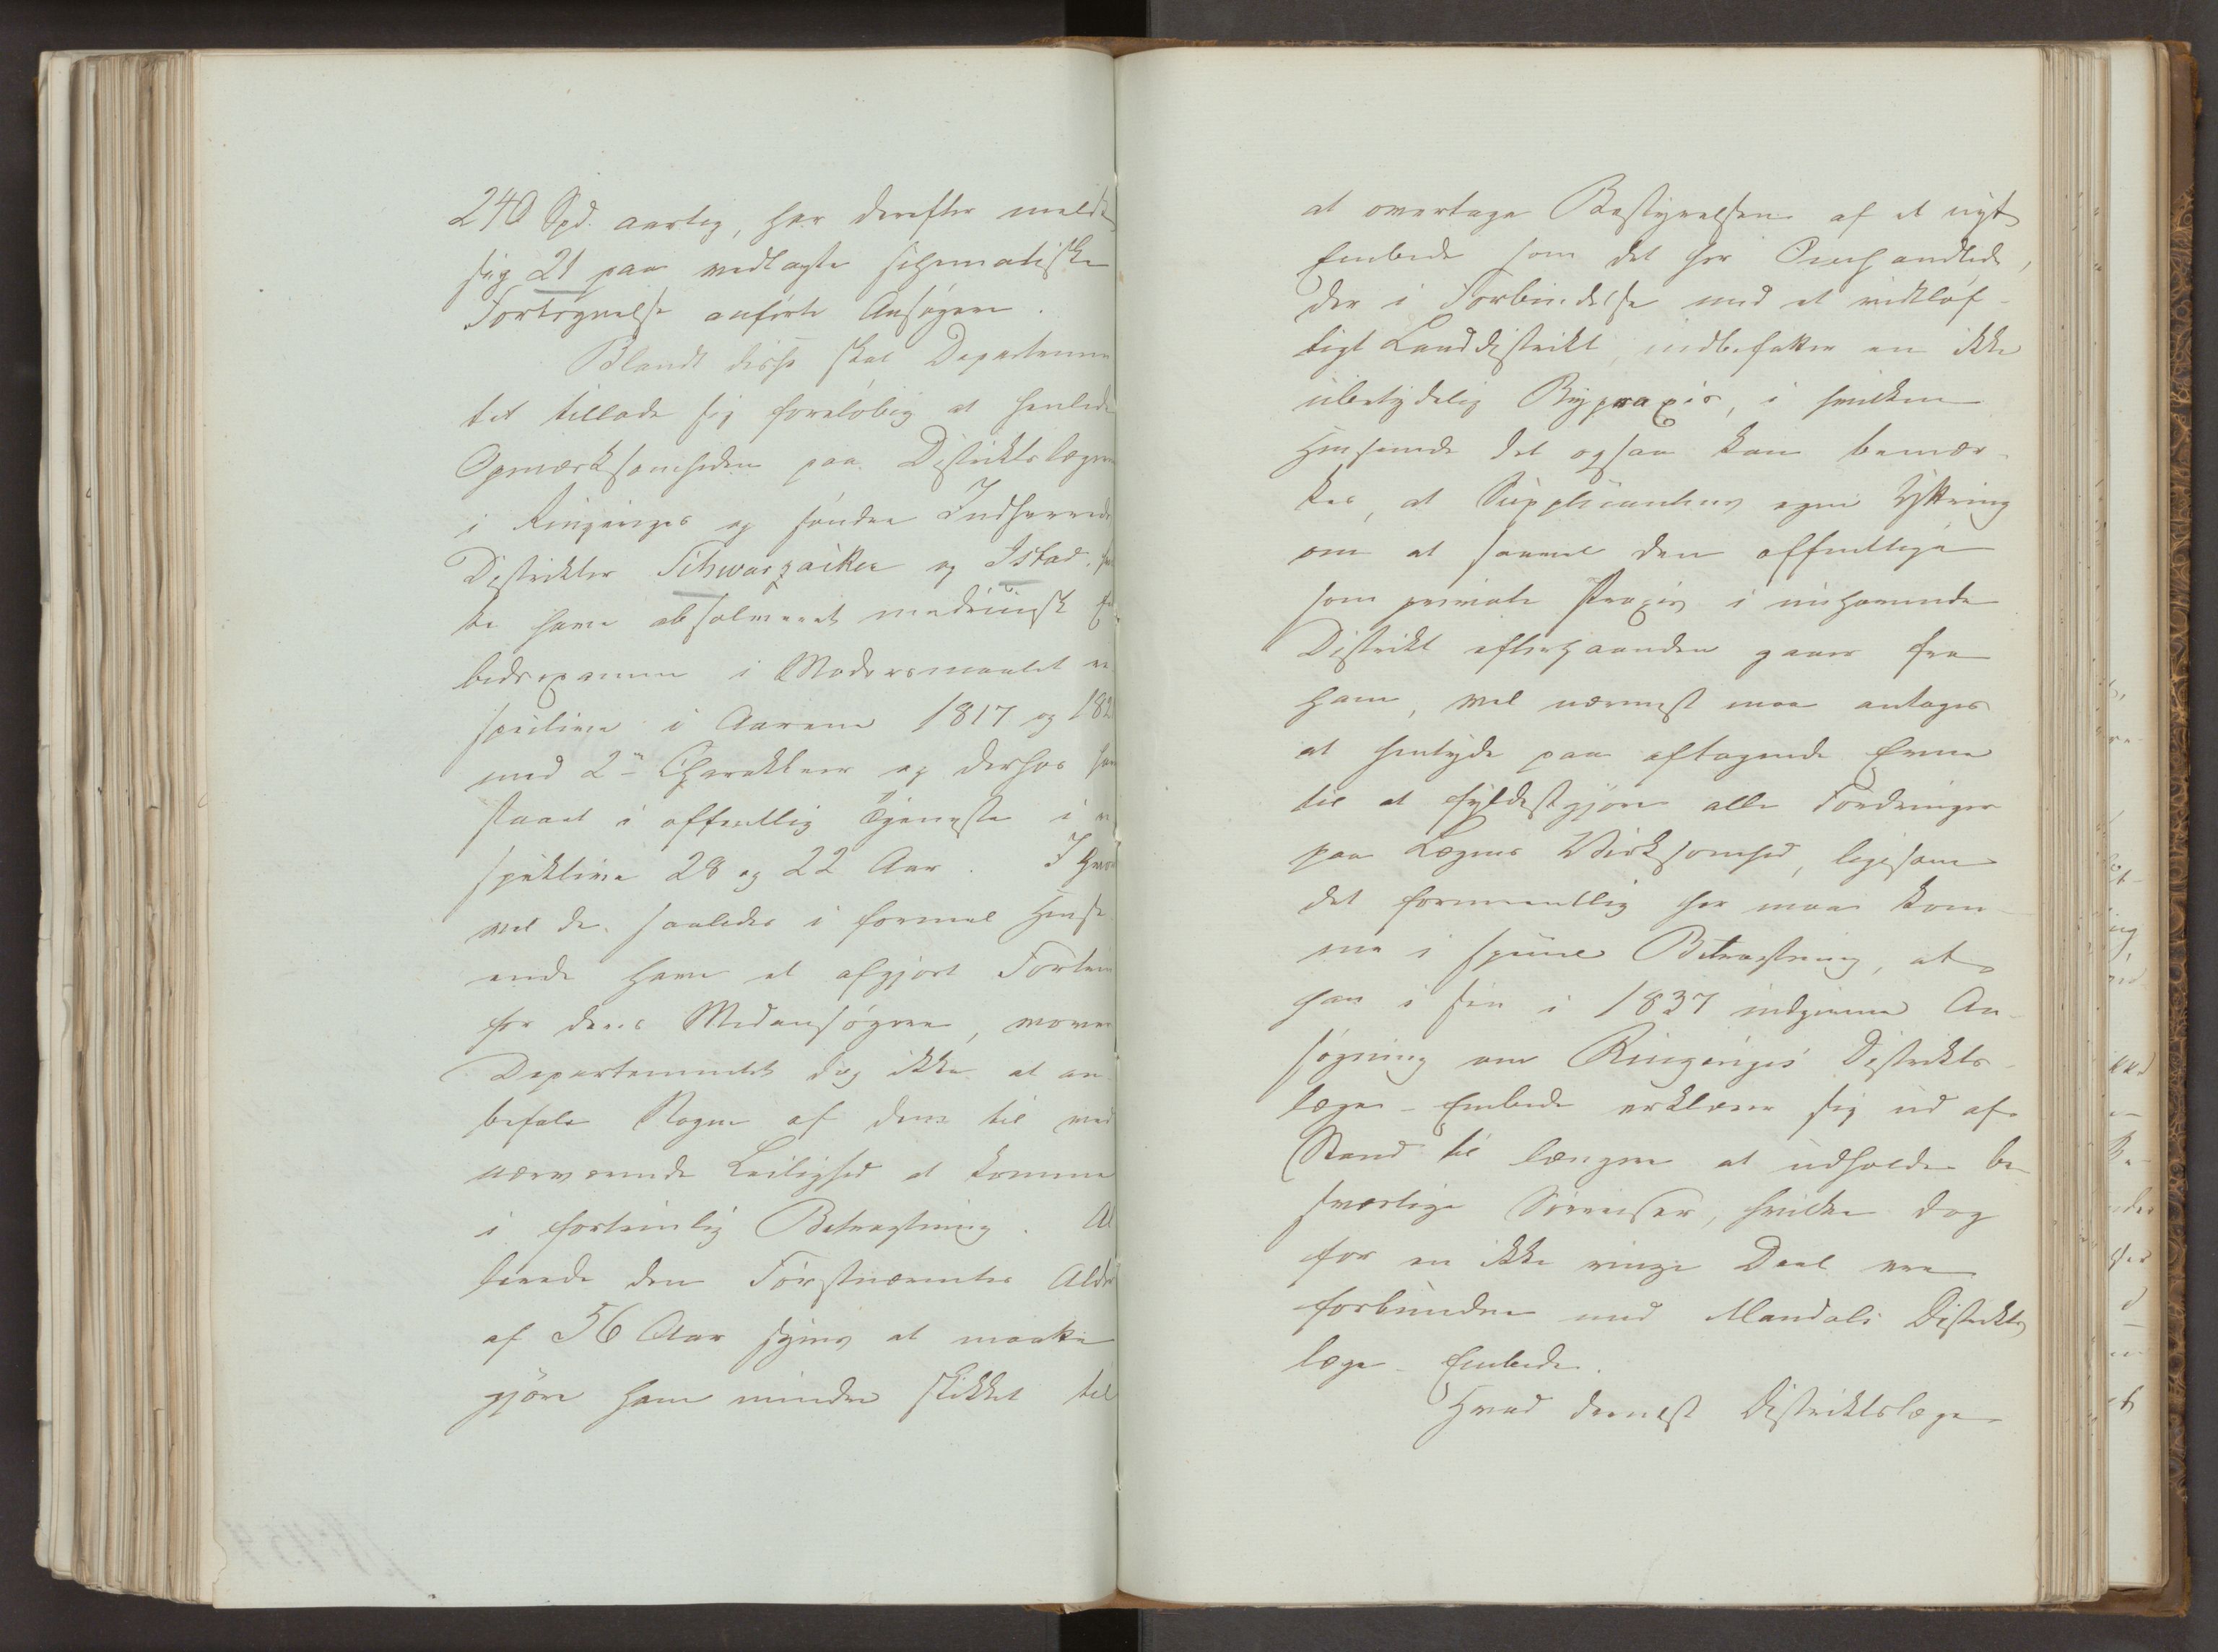 240 Spd. aarlig, har derefter meldt
sig 21 paa vedlagte schematiske
Fortegnelse anførte Ansøgere.
Blandt disse skal Departemen
tet tillade sig foreløbig at henlede
Opmærksomheden paa Distriktslægerne
i Ringeriges og søndre Indherreds
Distrikter Schwarzäiker og Istad.
De have absolveret medicinsk Em
bedsexamen i Modersmaalet re
spective i Aarene 1817 og 182
med 2den Charakteer og derhos
staaet i offentlig Tjeneste i re
spektive 28 og 22 Aar. I hvor
vel de saaledes i formel Hense
ende have et afgjort Fortrin
for deres Medansøgere, vover
Departementet dog ikke at an
befale Nogen af dem til ved
nærværende Leilighed at komme
i fortrinlig Betragtning. Al
lerede den Førstnævntes Alder
af 56 Aar synes at maatte
gjøre ham mindre skikket til
at overtage Bestyrelsen af et nyt
Embede som det her Omhandlede,
der i Forbindelse med et vidtløf-
tigt Landdistrikt, indbefatter en ikke
ubetydelig Bypraxis, i hvilken
Henseende det ogsaa kan bemær-
kes, at Supplicantens egen Yttring
om at saavel den offentlige
som private Praxis i nuhavende
Distrikt efterhaanden gaaer fra
ham, vel nærmest maa antages
at hentyde paa aftagende Evne
til at fyldestgjøre alle Fordringer
paa Lægens Virksomhed, ligesom
det formeentlig her maa kom-
me i speciel Betragtning, at
han i sin i 1837 indgivne An-
søgning om Ringeriges Distrikts-
læge-Embede erklærer sig ud af
Stand til længere at udholde be-
sværlige Søreiser, hvilke dog
for en ikke ringe Deel ere
forbundne med Mandals Distrikts
læge-Embede.
Hvad dernæst Distriktslæge